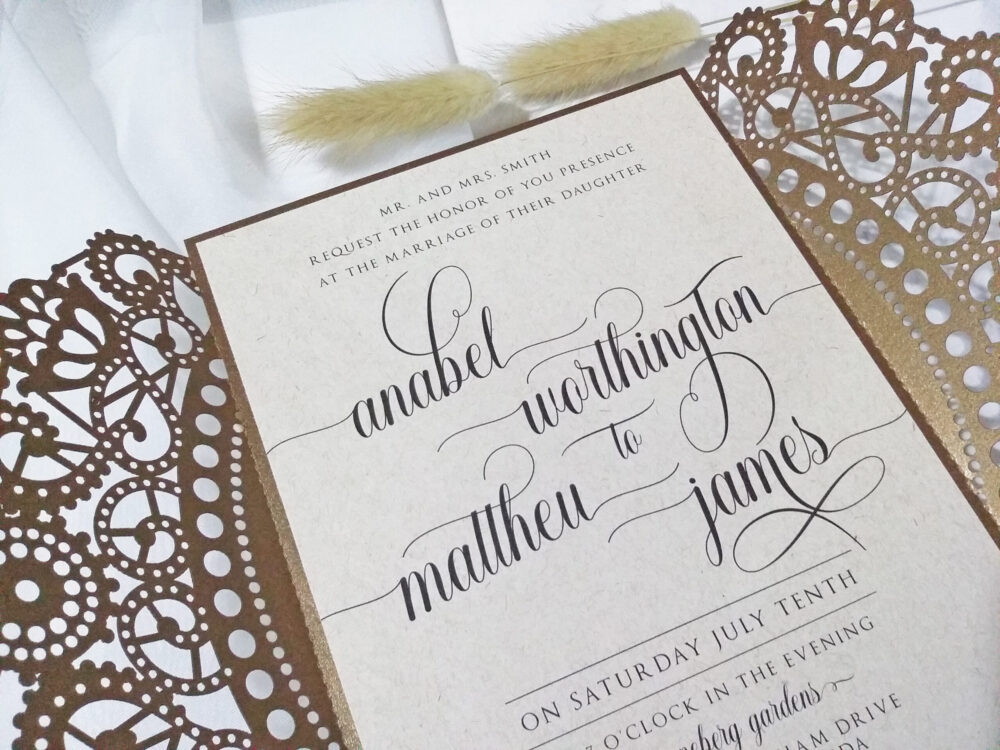 MR. AND MRS. SMITH
REQUEST THE HONOR OF YOU PRESENCE
AT THE MARRIAGE OF THEIR DAUGHTER
anabel
worthington
to
mattheu
james
ON SATURDAY JULY TENTH
O'CLOCK IN THE EVENING
gardens
DRIVE